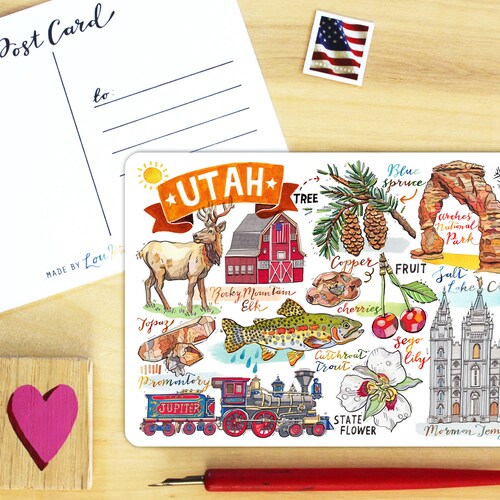 Post Card
to:
MADE BY
UTAH
TREE
Blue
spruce
Arches
National
Park
Rocky Mountain
Elk
Copper
FRUIT
cherries
Salt
Topaz
Cutthroat
trout
Sego
lily
Promontory
JUPITER
STATE
FLOWER
Mormon